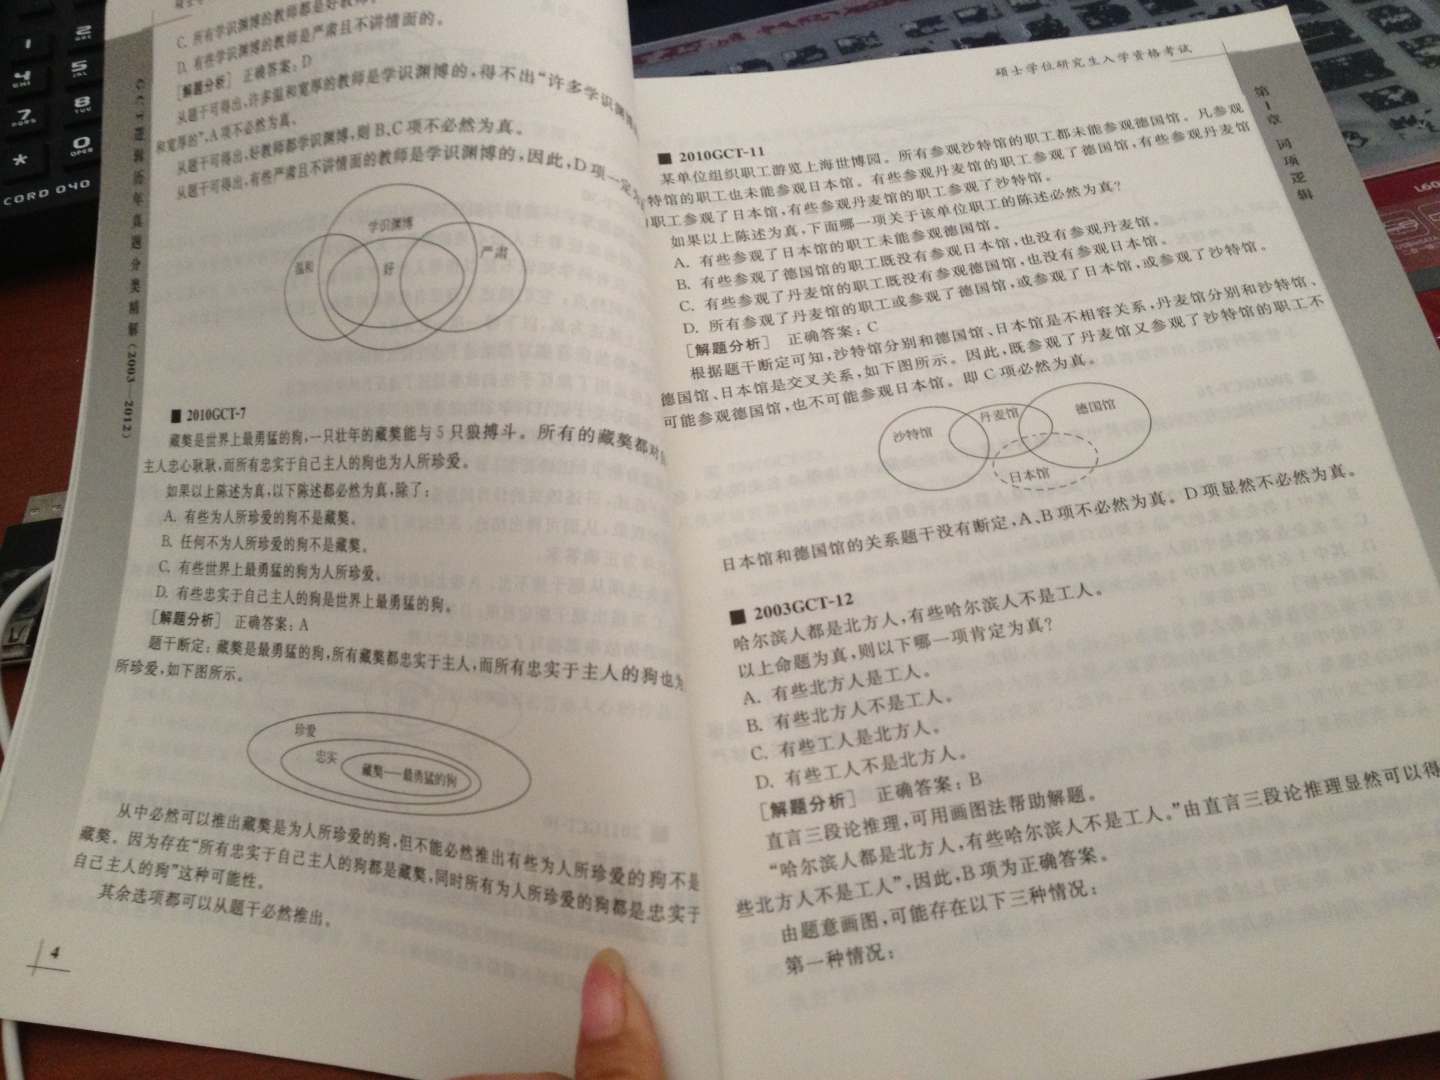 C. 所有学识渊博的教师都是好教师。
D. 有些学识渊博的教师是严肃且不讲情面的。
[解题分析] 正确答案：D
从题干可得出，许多温和宽厚的教师是学识渊博的，得不出“许多学识渊博
和宽厚的”，A项不必然为真。
从题干可得出，好教师都学识渊博，则B、C项不必然为真。
从题干可得出，有些严肃且不讲情面的教师是学识渊博的，因此，D项一定为
学识渊博
温和
好
严肃
■ 2010GCT-7
藏獒是世界上最勇猛的狗，一只壮年的藏獒能与5只狼搏斗。所有的藏獒都对自
主人忠心耿耿，而所有忠实于自己主人的狗也为人所珍爱。
如果以上陈述为真，以下陈述都必然为真，除了：
A. 有些为人所珍爱的狗不是藏獒。
B. 任何不为人所珍爱的狗不是藏獒。
C. 有些世界上最勇猛的狗为人所珍爱。
D. 有些忠实于自己主人的狗是世界上最勇猛的狗。
[解题分析] 正确答案：A
题干断定：藏獒是最勇猛的狗，所有藏獒都忠实于主人，而所有忠实于主人的狗也为
所珍爱，如下图所示。
珍爱
忠实
藏獒——最勇猛的狗
从中必然可以推出藏獒是为人所珍爱的狗，但不能必然推出有些为人所珍爱的狗不是
藏獒。因为存在“所有忠实于自己主人的狗都是藏獒，同时所有为人所珍爱的狗都是忠实于
自己主人的狗”这种可能性。
其余选项都可以从题干必然推出。
4
GCT逻辑历年真题分类精解（2003—2012）
硕士学位研究生入学资格考试
第1章 词项逻辑
■ 2010GCT-11
某单位组织职工游览上海世博园。所有参观沙特馆的职工都未能参观德国馆。凡参观
特馆的职工也未能参观日本馆。有些参观丹麦馆的职工参观了德国馆，有些参观丹麦馆
职工参观了日本馆，有些参观丹麦馆的职工参观了沙特馆。
如果以上陈述为真，下面哪一项关于该单位职工的陈述必然为真？
A. 有些参观了日本馆的职工未能参观德国馆。
B. 有些参观了德国馆的职工既没有参观日本馆，也没有参观丹麦馆。
C. 有些参观了丹麦馆的职工既没有参观德国馆，也没有参观日本馆。
D. 所有参观了丹麦馆的职工或参观了德国馆，或参观了日本馆，或参观了沙特馆。
[解题分析] 正确答案：C
根据题干断定可知，沙特馆分别和德国馆、日本馆是不相容关系，丹麦馆分别和沙特馆、
德国馆、日本馆是交叉关系，如下图所示。因此，既参观了丹麦馆又参观了沙特馆的职工不
可能参观德国馆，也不可能参观日本馆。即C项必然为真。
沙特馆
丹麦馆
德国馆
日本馆
日本馆和德国馆的关系题干没有断定，A、B项不必然为真。D项显然不必然为真。
■ 2003GCT-12
哈尔滨人都是北方人，有些哈尔滨人不是工人。
以上命题为真，则以下哪一项肯定为真？
A. 有些北方人是工人。
B. 有些北方人不是工人。
C. 有些工人是北方人。
D. 有些工人不是北方人。
[解题分析] 正确答案：B
直言三段论推理，可用画图法帮助解题。
“哈尔滨人都是北方人，有些哈尔滨人不是工人。”由直言三段论推理显然可以得
些北方人不是工人”，因此，B项为正确答案。
由题意画图，可能存在以下三种情况：
第一种情况：
CORD 040